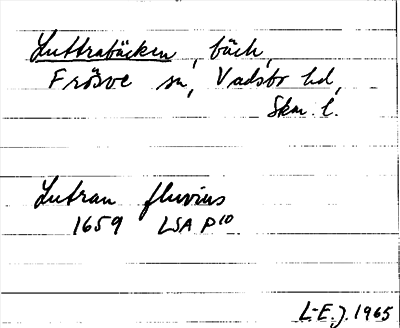 Luttrabäcken, bäck,
Frösve sn, Vadsbo hd,
Skar. l.
Lutran fluvius
1659 LSA P¹⁰
L-E.J. 1965